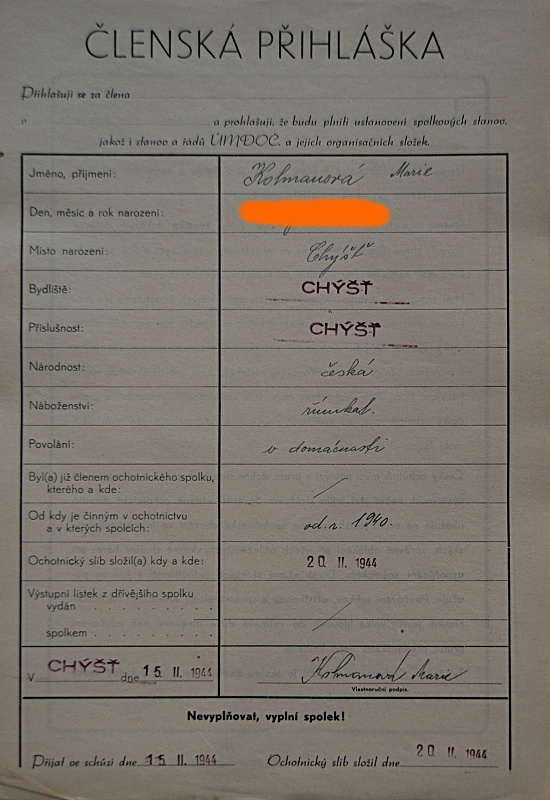 ČLENSKÁ PŘIHLÁŠKA
Přihlašuji se za člena
v a prohlašuji, že budu plniti ustanovení spolkových stanov,
jakož i stanov a řádů ÚMDOČ. a jejich organisačních složek.
Jméno, příjmení: Kolmanová Marie
Den, měsíc a rok narození:
Místo narození: Chýšť
Bydliště: CHÝŠŤ
Příslušnost: CHÝŠŤ
Národnost: česká
Náboženství: římkat.
Povolání: v domácnosti
Byl(a) již členem ochotnického spolku,
kterého a kde: /
Od kdy je činným v ochotnictvu
a v kterých spolcích: od r. 1940.
Ochotnický slib složil(a) kdy a kde: 20 II. 1944
Výstupní lístek z dřívějšího spolku
vydán . . . . . . . . . .
spolkem . . . . . . . . . /
V CHÝŠŤ dne 15 II. 1944 Kolmanová Marie
Vlastnoruční podpis.
Nevyplňovat, vyplní spolek!
Přijat ve schůzi dne 15 II. 1944 Ochotnický slib složil dne 20 II. 1944